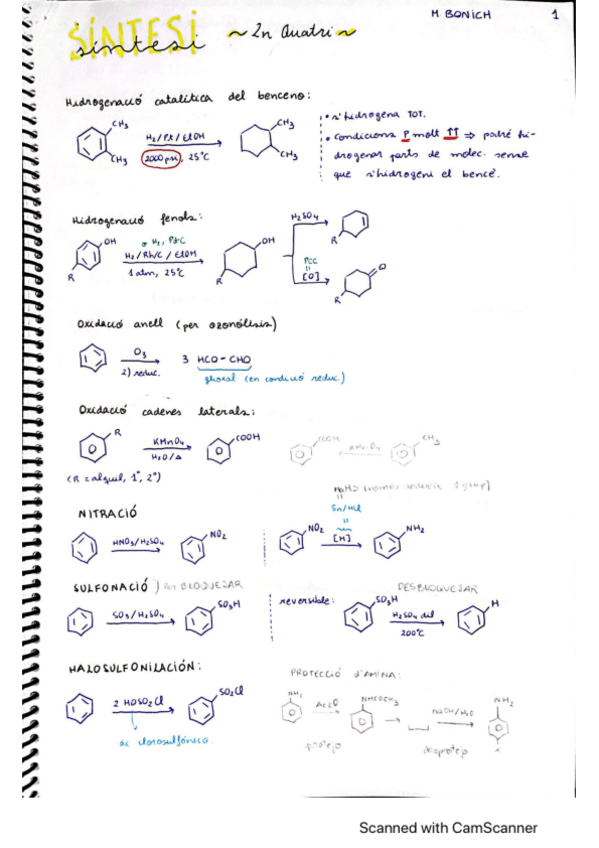 SÍNTESI
síntesi ~ 2n Quatri ~
M. BONICH 1
Hidrogenació catalítica del benceno:
CH3
CH3
H2/Pt/EtOH
2000 psi, 25°C
CH3
CH3
• s'hidrogena TOT.
• condicions P molt ↑↑ ⇒ podré hi-
drogenar parts de molec. sense
que s'hidrogeni el bencè.
Hidrogenació fenols:
OH
R
o H2, Pd-C
H2/Rh/C/EtOH
1 atm, 25°C
OH
R
H2SO4
R
PCC
[O]
O
R
Oxidació anell (per ozonólisis)
O3
2) reduc.
3 HCO-CHO
glioxal (en condició reduc)
Oxidació cadenes laterals:
R
KMnO4
H2O/Δ
COOH
COOH
KMnO4
CH3
(R = alquil, 1°, 2°)
NITRACIÓ
HNO3/H2SO4
NO2
Sn/HCl
NO2
[H]
NH2
SULFONACIÓ) per BLOQUEJAR
DESBLOQUEJAR
SO3/H2SO4
SO3H
reversible:
SO3H
H2SO4 dil
200°C
H
HALOSULFONILACIÓN:
2 HOSO2Cl
SO2Cl
àc clorosulfónico
PROTECCIÓ d'AMINA:
NH2
Ac2O
NHCOCH3
NaOH/H2O
NH2
protejo
desprotejo
Scanned with CamScanner